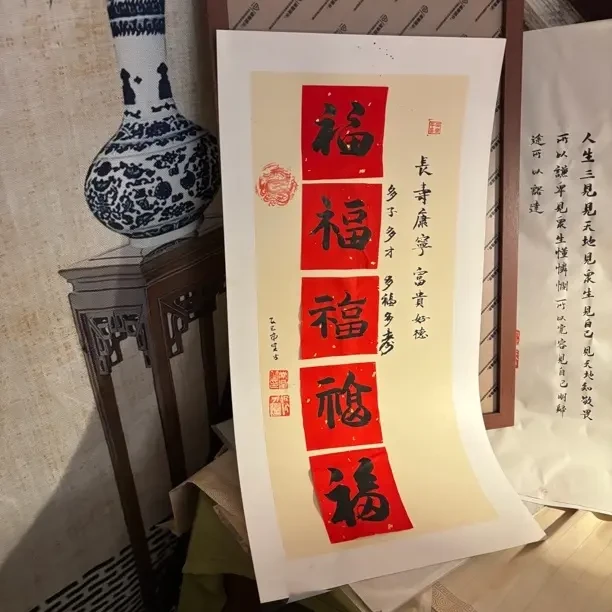 福
福
福
福
福
長壽康寧 富貴好德
多子 多才 多福多壽
人生三見見天地見衆生見自己見天地知敬畏
可以謙卑見衆生懂憐憫可以寬容見自己明歸
途可以豁達